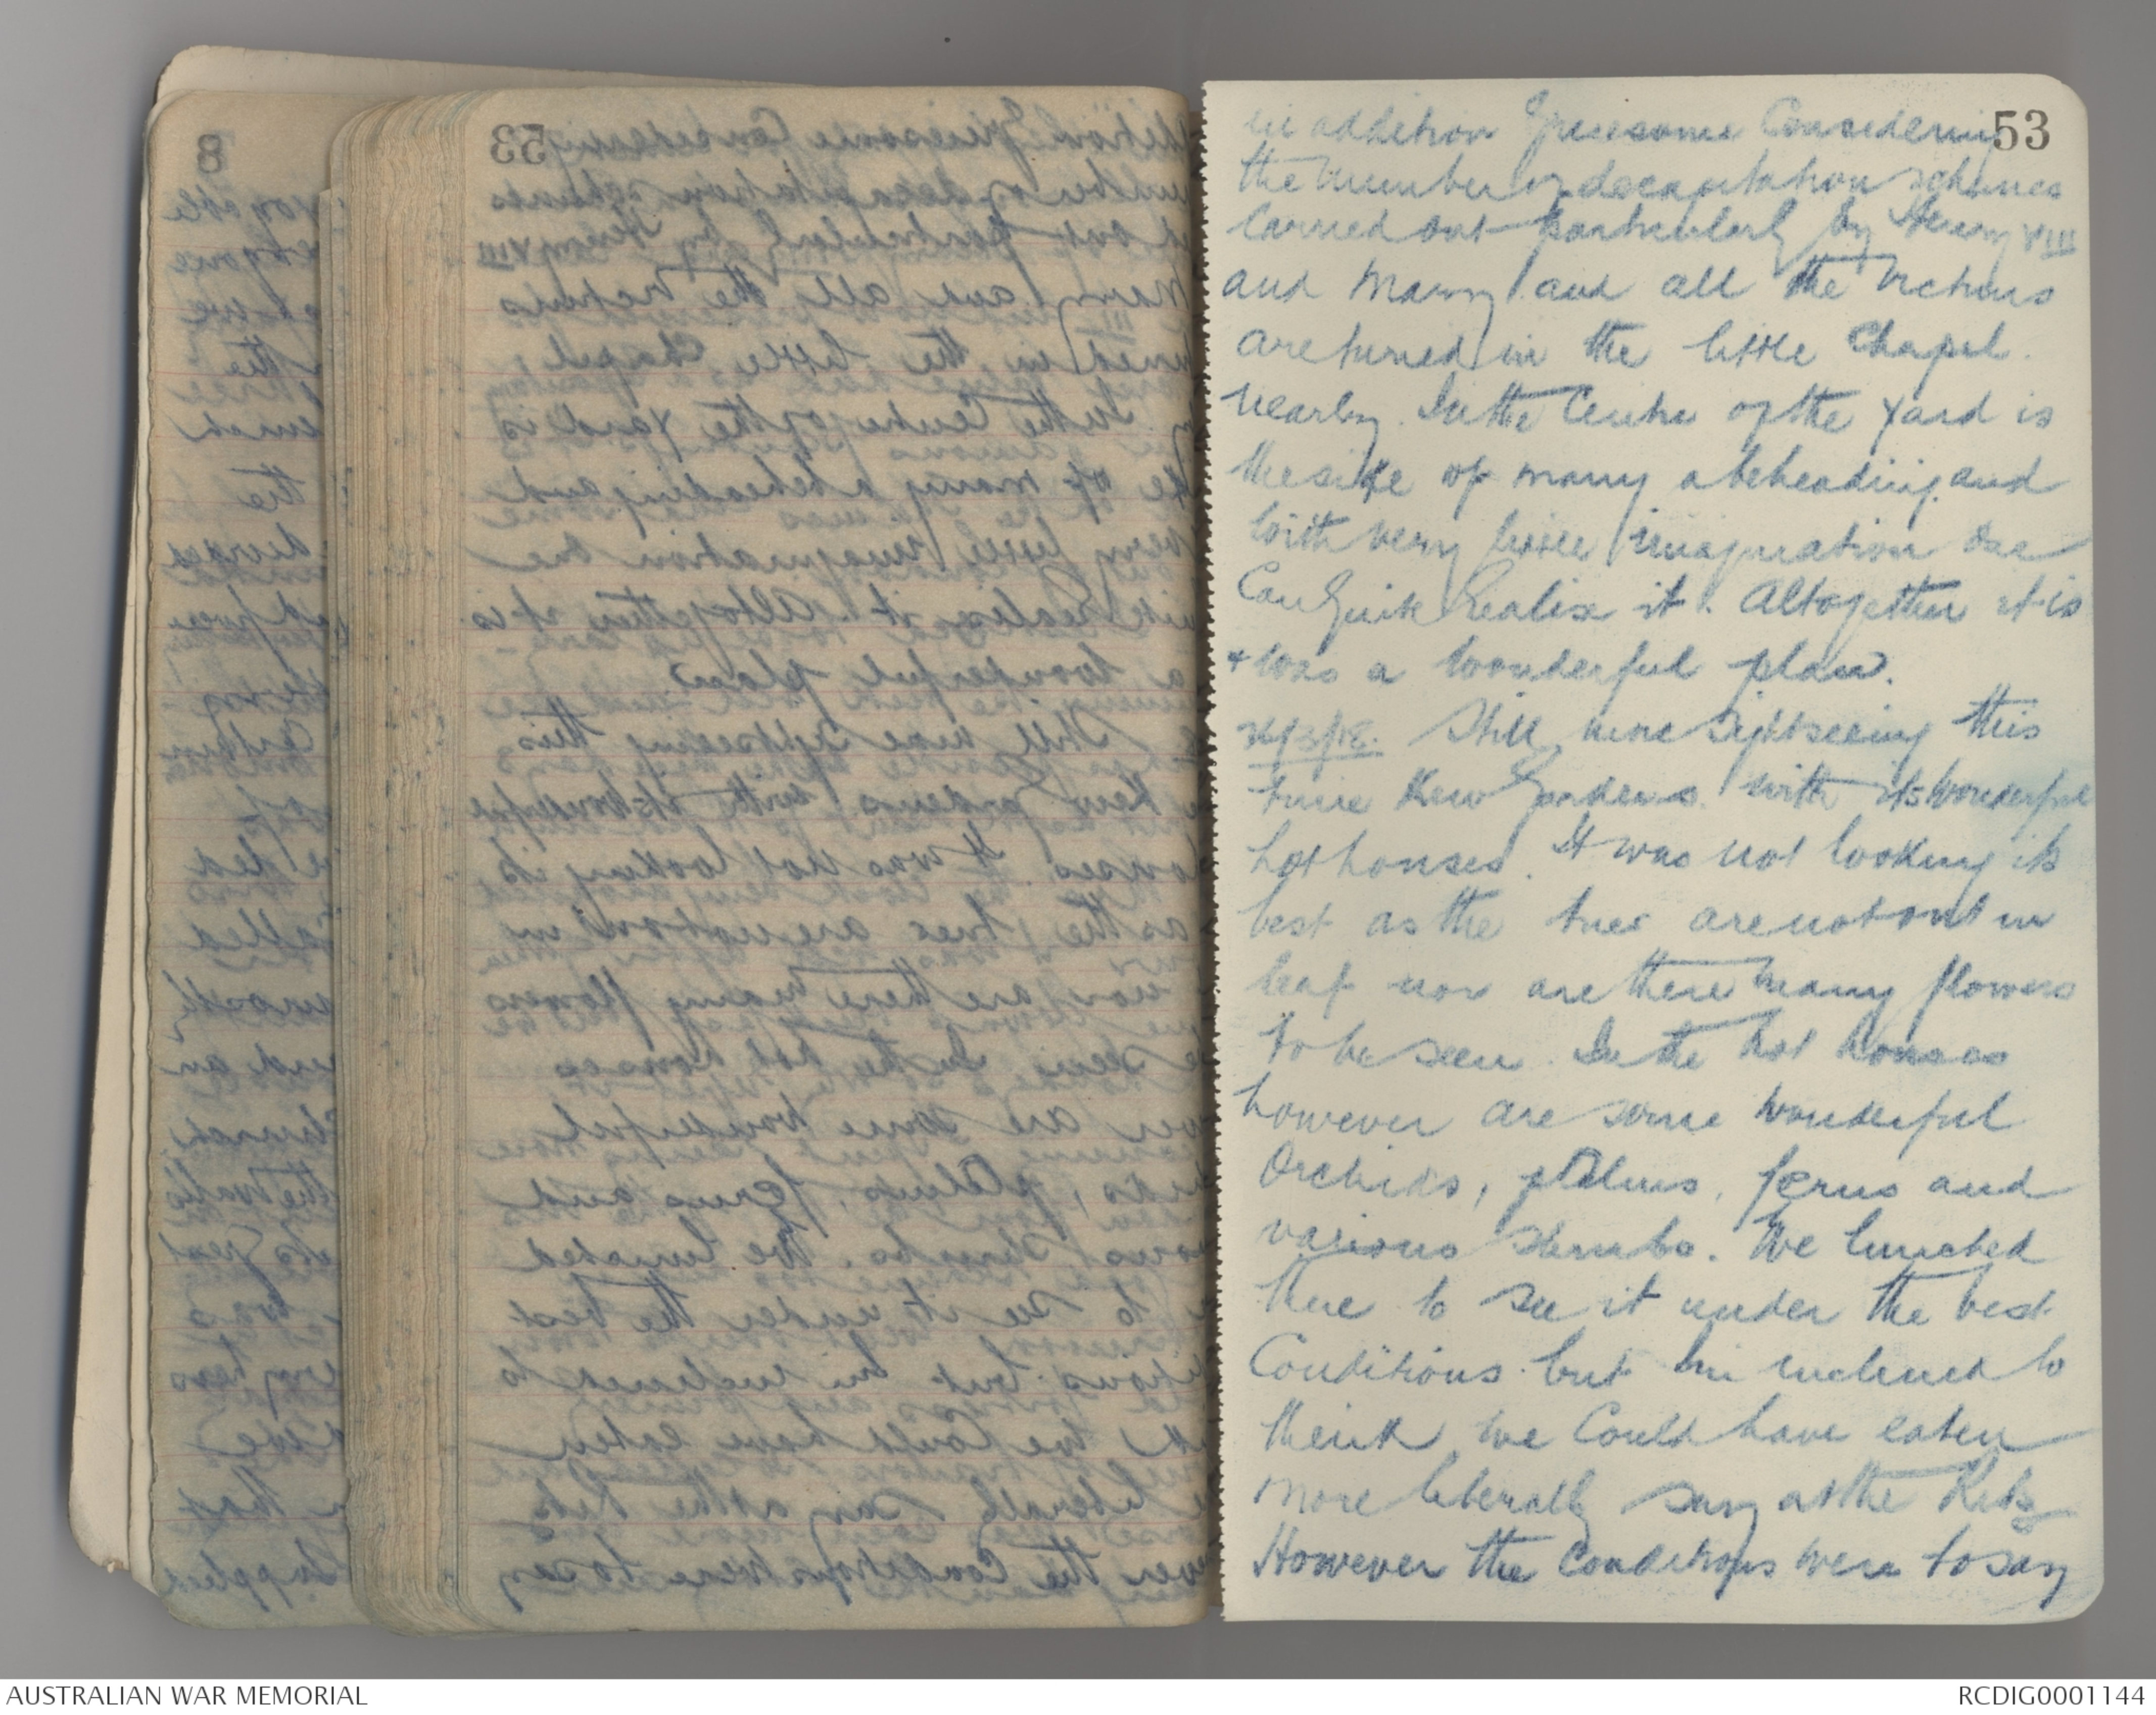 53
in addition Gruesome Considering
the number of decapitation schemes
Carried out particularly by Henry VIII
and Mary and all the victims
are turied in the little Chapel.
nearby. In the Centre of the yard is
the site of many a beheading and
with very little imagination one
Can Quite Realise it. Altogether it is
+ was a wonderful place.
/3/18. Still more Sightseeing this
time Kew Gardens with its wonderful
hot houses. It was not looking its
best as the trees are not out in
leaf nor are there many flowers
to be seen. In the hot houses
however are some wonderful
Orchids, palms, ferns and
various shrubs. We lunched
there to see it under the best
Conditions but Im inclined to
think we Could have eaten
more liberally say at the Ritz
However the Conditions were to say
AUSTRALIAN WAR MEMORIAL
RCDIG0001144